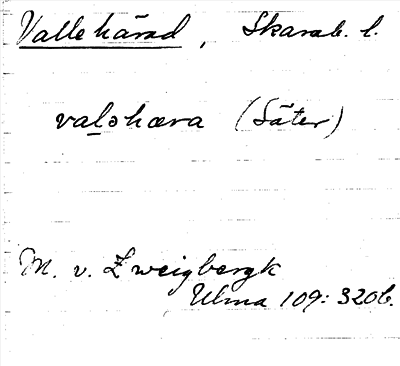 Valle härad, Skarab. l.
valəhæra (Säter)
M. v. Zweigbergk
Ulma 109: 320b.